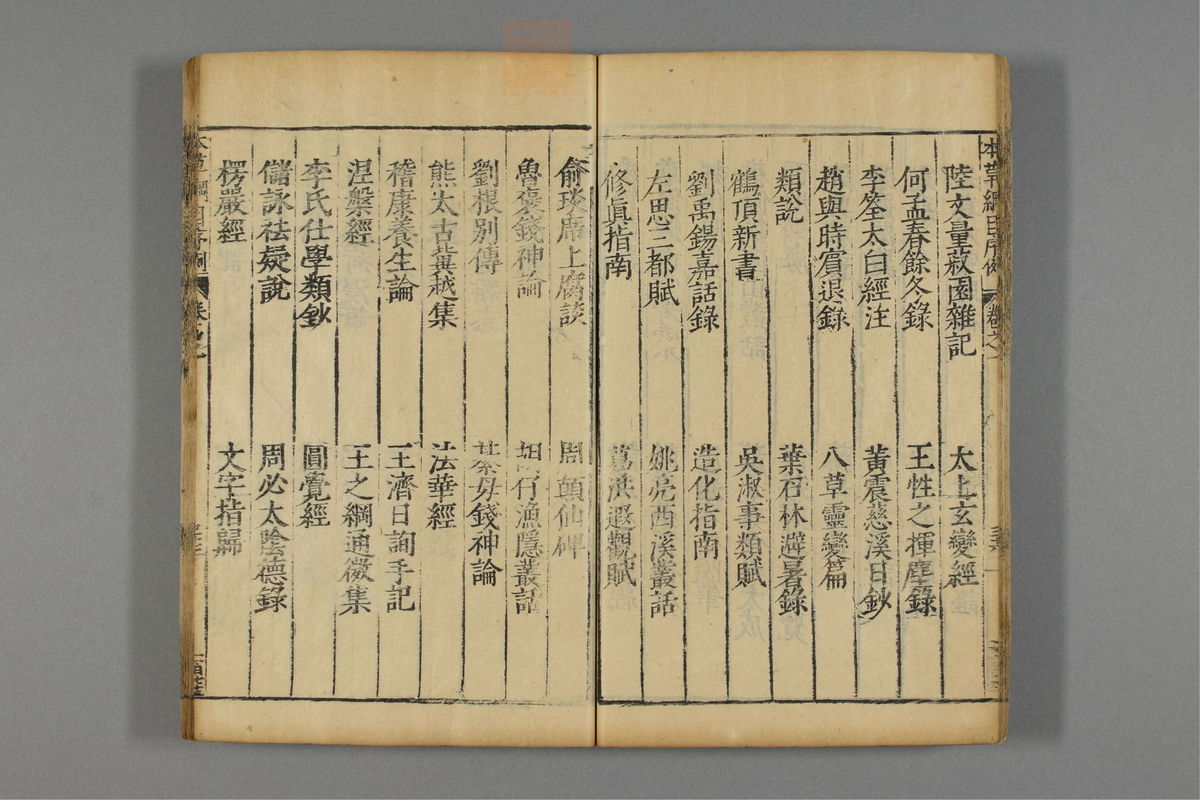 本草綱目序例 卷之一
陸文量菽園雜記 太上玄變經
何孟春餘冬錄 王性之揮麈錄
李筌太白經注 黃震慈溪日鈔
趙與時賓退錄 八草靈變篇
類說 葉石林避暑錄
鶴頂新書 吳淑事類賦
劉禹錫嘉話錄 造化指南
左思三都賦 姚亮西溪叢話
修眞指南 葛洪遐觀賦
俞琰席上腐談 周顛仙碑
魯褒錢神論 胡仔漁隱叢話
劉根別傳 綦毋錢神論
熊太古冀越集 法華經
稽康養生論 王濟日詢手記
涅槃經 王之綱通微集
李氏仕學類鈔 圓覺經
儲詠祛疑說 周必太陰德錄
楞嚴經 文字指歸
本草綱目序例